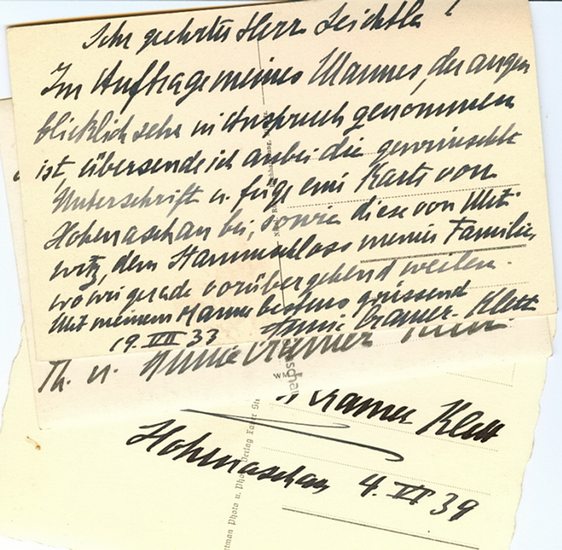 Sehr geehrter Herr Leichtle !
Im Auftrage meines Mannes, der augen
blicklich sehr in Anspruch genommen
ist, übersende ich anbei die gewünschte
Unterschrift u. füge eine Karte von
Hohenaschau bei, sowie diese von Mit
witz, dem Stammschloss meiner Familie,
wo wir gerade vorübergehend weilen.
Mit meinem Manne bestens grüssend
19. VII 33 Annie Cramer-Klett
Th. u. Annie Cramer Klett
Cramer Klett
Hohenaschau 4. VI 39